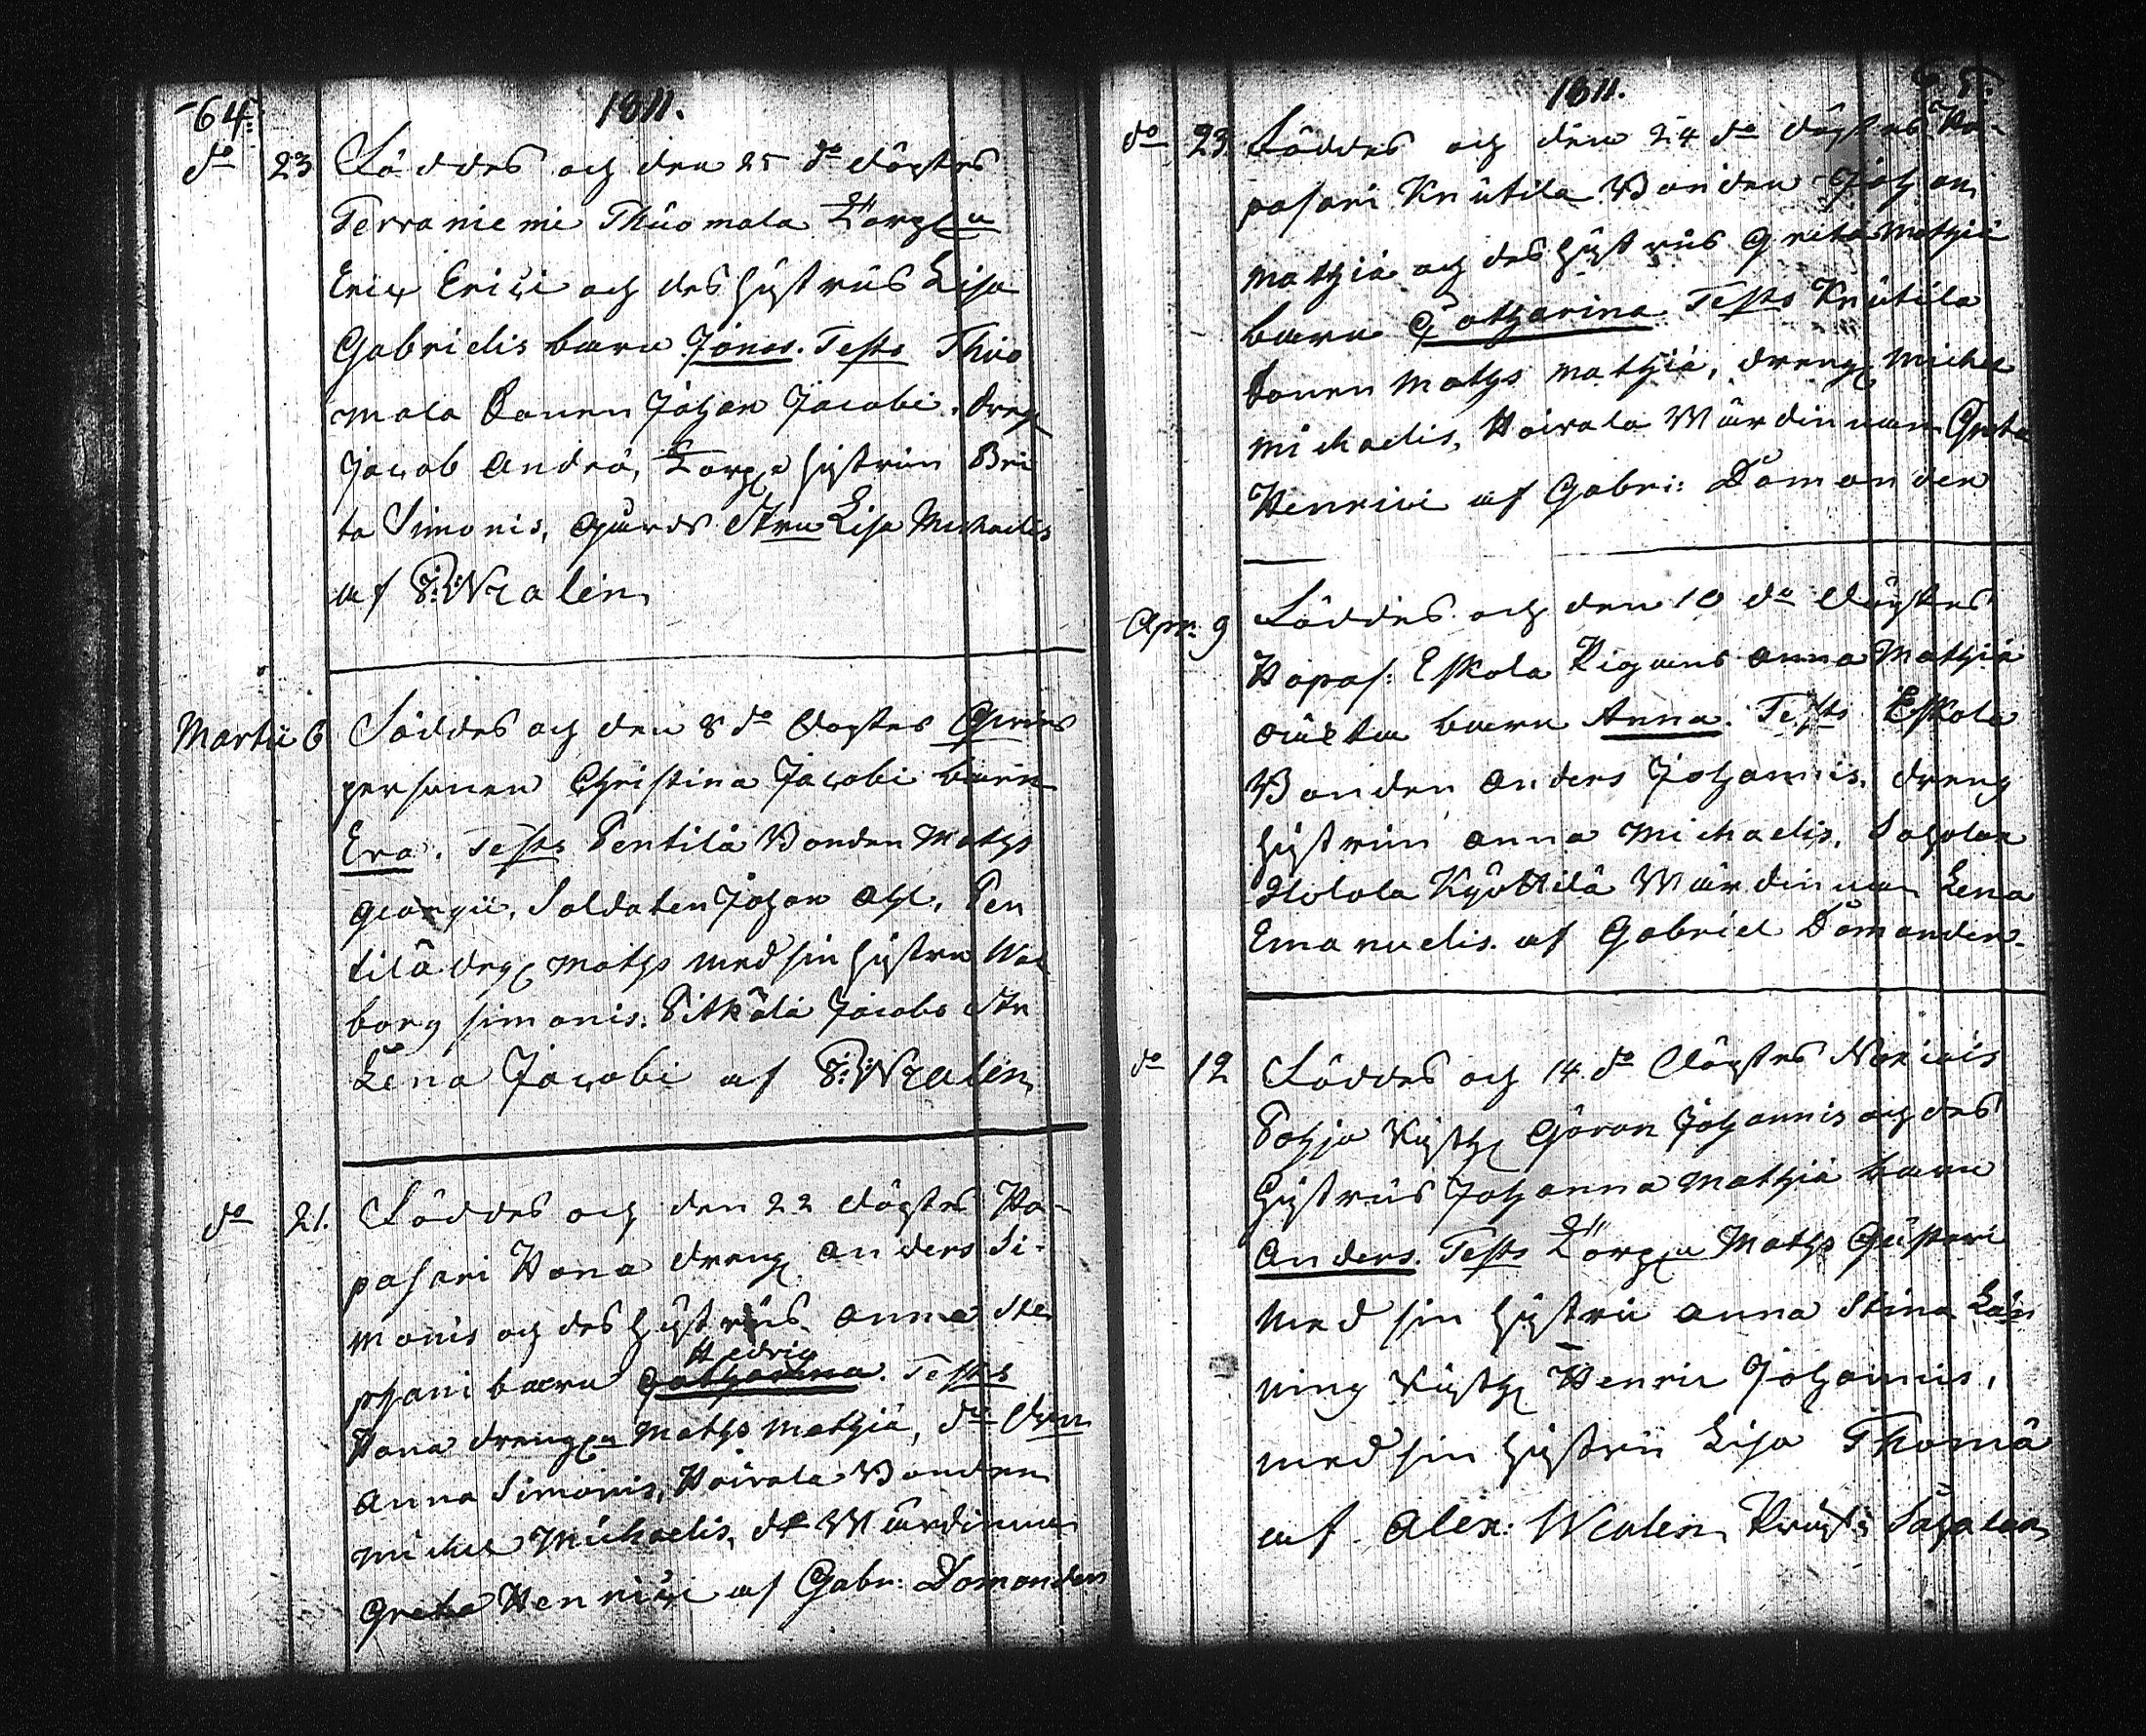 64. 1811.
do 23 Föddes och den 25 do döptes
Terraniemi Thuomala Torp:n
Eric Erici och des hustrus Lisa
Gabrielis barn Jonas. Tests Thuo
mala Sonen Johan Jacobi, dreng
Jacob Andræ, Torp: hustrun Bri
ta Simonis, Lisa Michaelis
af Walen
Martii 6 Föddes och den 8 do döptes
personen Christina Jacobi barn
Eva. Tests Pentilä Bonden Mathts
Georgii, Soldaten Johan Ahl, Pen
tilä dreng Mathts med sin hustru Wal
borg Simonis. Pitkälä Jacobs
Lena Jacobi af Walen
do 21. Föddes och den 22 döptes Ha-
pasari Hana dreng Anders Si-
monis och des hustrus Anna Ste
Hedvig
phani barn Catharina. Tests
Hana drengen Mathts Mathiæ, do
Anna Simonis, Hoivala Bonden
Michel Michaelis, do Wärdinnan
Greta Henrici af Gabr: Domander
1811. 65.
do 23. Föddes och den 24 do döptes Ha-
pasari Knutila Bonden Johan
Mathiæ och des hustrus Greta Mathiæ
barn Catharina Tests Knutila
Sonen Mathts Mathiæ, dreng Michel
Michaelis, Hoivala Wärdinnan Greta
Henrici af Gabri: Domander
Apr. 9 Föddes och den 10 do döptes
Hapas: Eskola Pigans Anna Mathiæ
oäkta barn Anna. Tests Eskola
Bonden Anders Johannis, dreng
hustrun Anna Michaelis,
Kyöttilä Wärdinnan Lena
Emanuelis. af Gabriel Domander.
do 12 Föddes och 14 do döptes
Pohja Göran Johannis och des
hustrus Johanna Mathiæ barn
Anders. Tests Torp:n Mathts Gustavi
med sin hustru Anna Stina
Henric Johannis,
med sin hustru Lisa Thomæ
af Alex: Walen